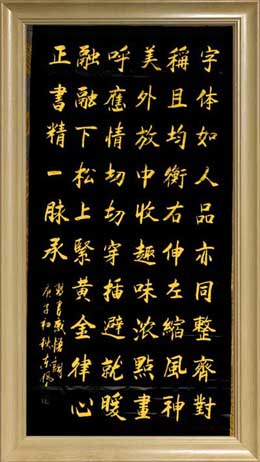 字体如人品亦同整齊對
稱且均衡右伸左縮風神
美外放中收趣味浓點畫
呼應情切切穿插避就暖
融融下松上緊黄金律心
正書精一脉承
庚子初秋